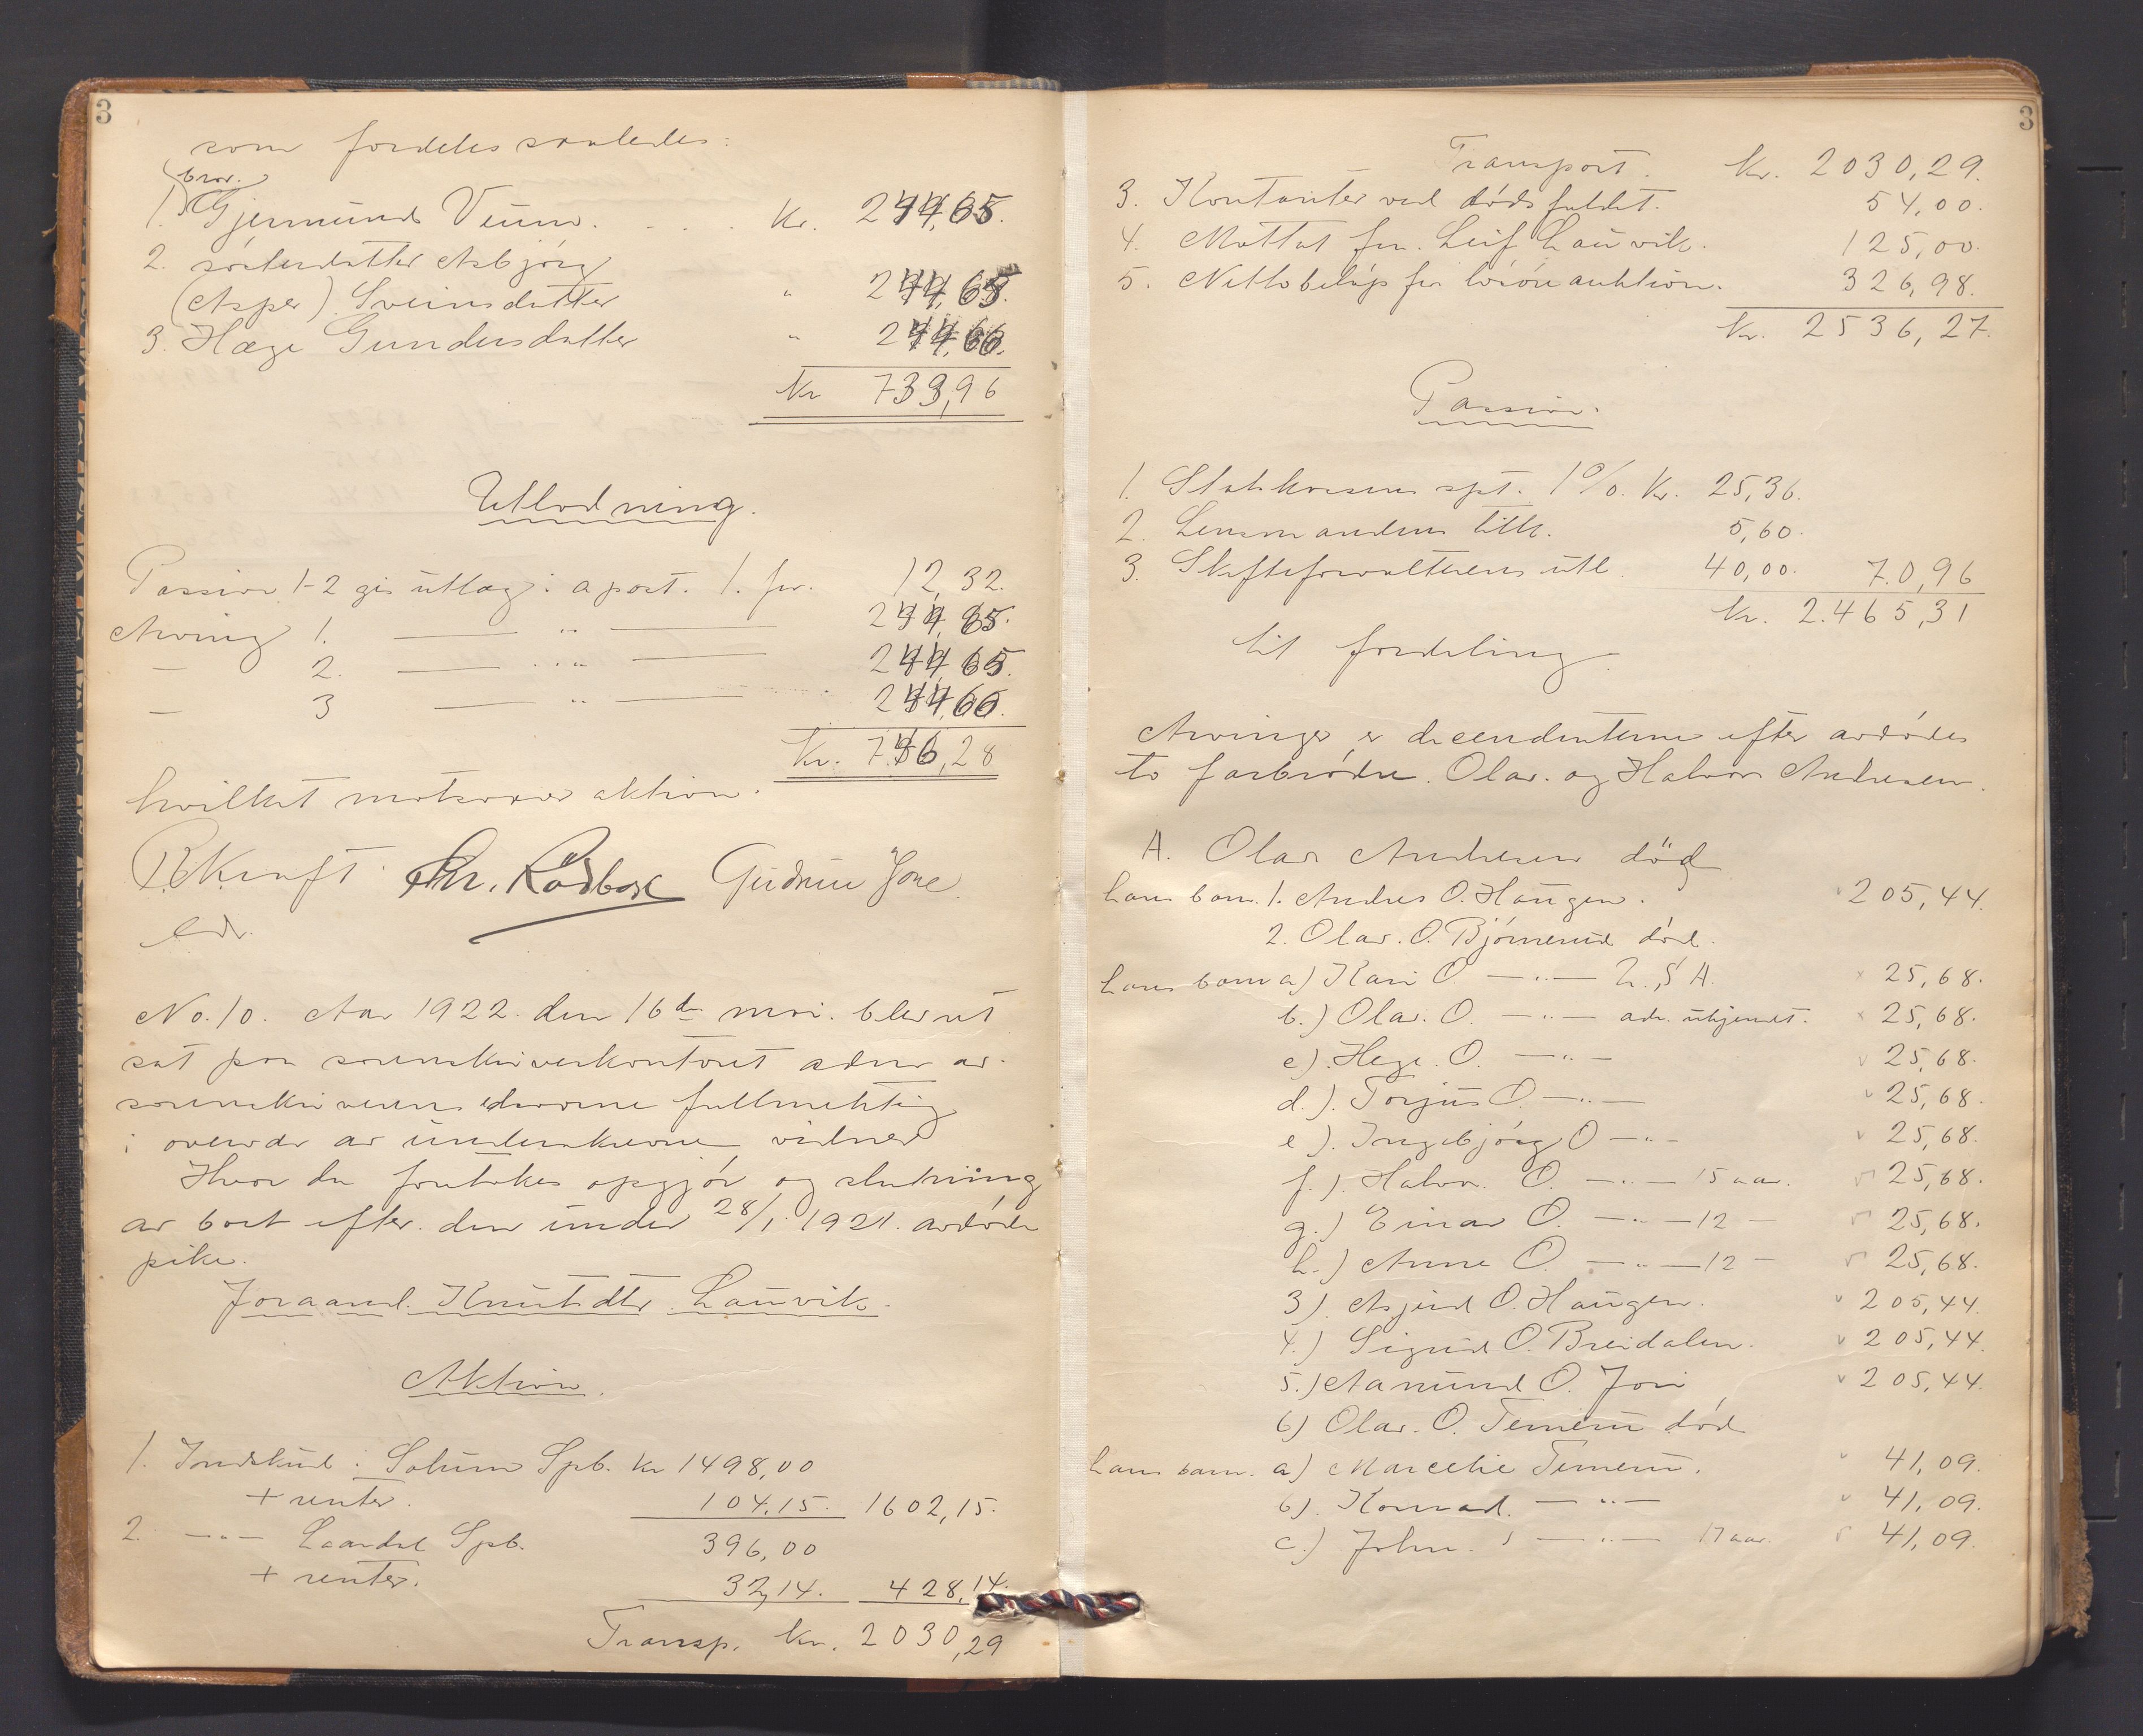 3
som fordeles saaledes:
bror.
1. Gjermund Veum. . . . Kr. 244,65.
2. søsterdatter Asbjørg
(Asper) Sveinsdatter " 244,65.
3. Hæge Gundersdatter " 244,66.
Kr 733,96
Utlodning.
Passiva 1-2 gis utlæg i a post. 1. for. 12,32.
Arving 1. — " — 244,65.
— 2. — " — 244,65.
— 3 — " — 244,66.
Kr. 746,28
hvilket motsvarer aktiva.
B. Kraft. Chr. Rødbøl Gudrun Jore
edv.
No. 10. Aar 1922 den 16de mai blev ret
sat paa sorenskriverkontoret adm av
sorenskriverens edsvorne fuldmægtig
i overvær av underskrevne vidner
Hvor da foretokes opgjør og slutning
av boet efter den under 28/1 1921 avdøde
pike.
Joraand Knutsdtr Lauvik.
Aktiva.
1. Indskud i Solum Spb. Kr 1498,00
+ renter. 104,15. 1602,15.
2. —"— Laardal Spb. 396,00
+ renter. 32,14. 428,14.
Transp. Kr. 2030,29
3
Transport. Kr. 2030,29.
3. Kontanter ved dødsfaldet. 54,00.
4. Mottat fra Leif Lauvik. 125,00.
5. Nettobeløp for løsøreauktion. 326,98.
Kr. 2536,27.
Passiva.
1. Statskassens spt. 1%. Kr. 25,36.
2. Lensmandens tilk. 5,60.
3. Skifteforvalterens utl. 40,00. 70,96
Kr. 2.465,31
til fordeling.
Arvinger er decendenterne efter avdødes
to farbrødre Olav og Halvor Andresen.
A. Olav Andresen død
hans barn 1. Andres O. Haugen. 205,44.
2. Olav O. Bjørnerud død.
hans barn a) Kari O. —"— U.S.A. 25,68.
b.) Olav. O. —"— adr. ukjendt. 25,68.
c) Hege O. —"— 25,68.
d.) Torjus O. —"— 25,68.
e) Ingebjørg O —"— 25,68.
f.) Halvor O. —"— 15 aar. 25,68.
g.) Einar O. —"— 12 — 25,68.
h.) Anne O. —"— 12 — 25,68.
3) Asjerd O. Haugen. 205,44.
4.) Sigurd O. Breidalen. 205,44.
5.) Aanund O. Jori 205,44.
6) Olav O. Temeru død
hans barn a) Marcelie Temeru. 41,09.
b) Konrad. —"— 41,09.
c.) John. —"— 17 aar. 41,09.